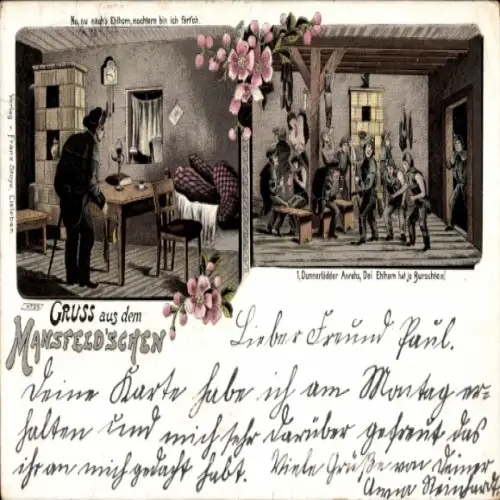 No, nu noch's Ehlhorn, nochtern bin ich färsch.
Verlag v. Franz Stoye, Eisleben
I, Dunnerlidder Anrehs, Dei Ehlhorn hat je Bjerschtein!
GRUSS aus dem
MANSFELD'SCHEN
Lieber Freund Paul.
Deine Karte habe ich am Montag er-
halten und mich sehr darüber gefreut das
ihr an mich gedacht habt. Viele Grüße von deiner
Anna Reinhardt